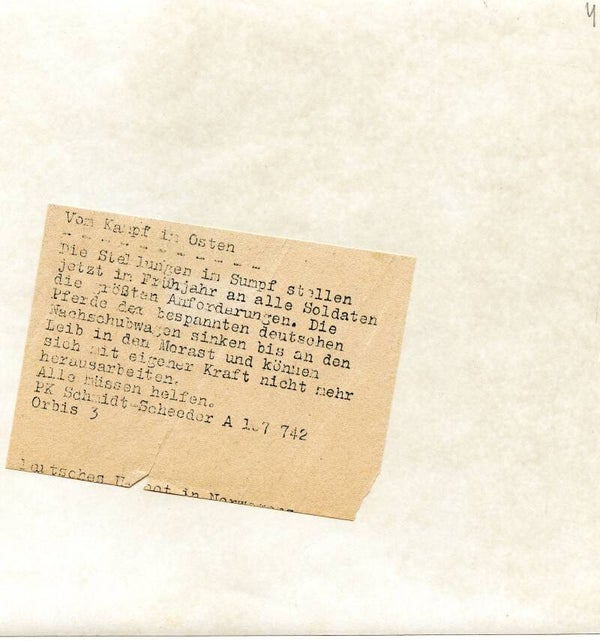 4
Vom Kampf im Osten
- - - - - - - - - - - -
Die Stellungen im Sumpf stellen
jetzt im Frühjahr an alle Soldaten
die größten Anforderungen. Die
Pferde der bespannten deutschen
Nachschubwagen sinken bis an den
Leib in den Morast und können
sich mit eigener Kraft nicht mehr
herausarbeiten.
Alle müssen helfen.
PK Schmidt-Scheeder A 742
Orbis 3
Deutsches in